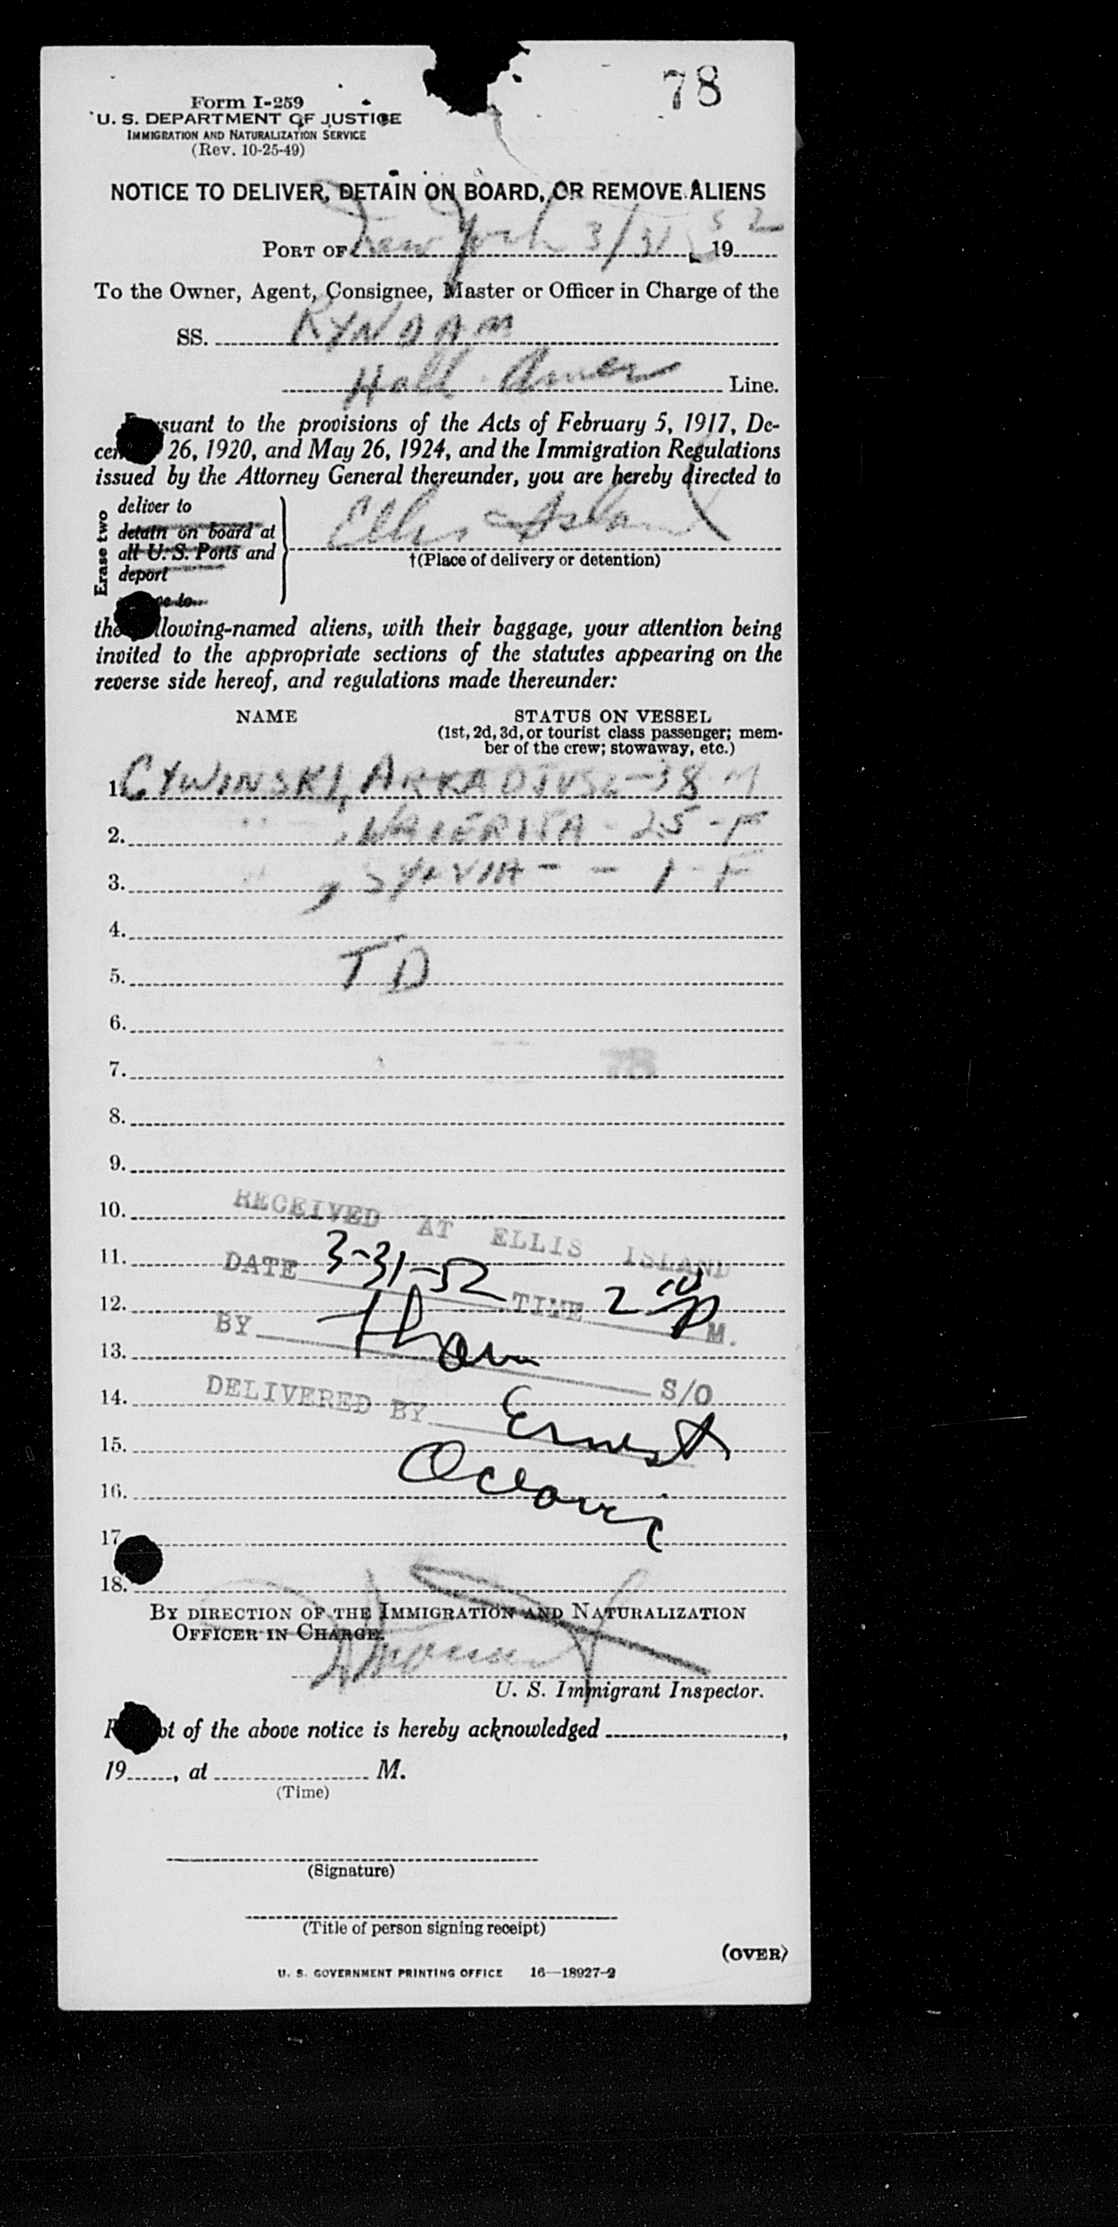 78
Form I-259
U. S. DEPARTMENT OF JUSTICE
IMMIGRATION AND NATURALIZATION SERVICE
(Rev. 10-25-49)
NOTICE TO DELIVER, DETAIN ON BOARD, OR REMOVE ALIENS
PORT OF New York 3/31, 1952
To the Owner, Agent, Consignee, Master or Officer in Charge of the
SS. RYNDAM
Holl. Amer Line.
suant to the provisions of the Acts of February 5, 1917, De-
cem 26, 1920, and May 26, 1924, and the Immigration Regulations
issued by the Attorney General thereunder, you are hereby directed to
Erase two
deliver to
detain on board at
all U. S. Ports and
deport
Ellis Island
†(Place of delivery or detention)
the llowing-named aliens, with their baggage, your attention being
invited to the appropriate sections of the statutes appearing on the
reverse side hereof, and regulations made thereunder:
NAME STATUS ON VESSEL
(1st, 2d, 3d, or tourist class passenger; mem-
ber of the crew; stowaway, etc.)
1. CYWINSKI, ARKADIUSZ - 38 M
2. " , WALERIJA - 25 - F
3. " , SYLVIA - - 1 - F
4.
5. T D
6.
7. 78
8.
9.
10. RECEIVED AT ELLIS ISLAND
11. DATE 3-31-52 TIME 2 00 P M.
12.
13. BY S/O
14. DELIVERED BY Ernest
15.
16.
17
18.
BY DIRECTION OF THE IMMIGRATION AND NATURALIZATION
OFFICER IN CHARGE.
U. S. Immigrant Inspector.
R pt of the above notice is hereby acknowledged ,
19 , at M.
(Time)
(Signature)
(Title of person signing receipt)
(OVER)
U. S. GOVERNMENT PRINTING OFFICE 16—18927-2